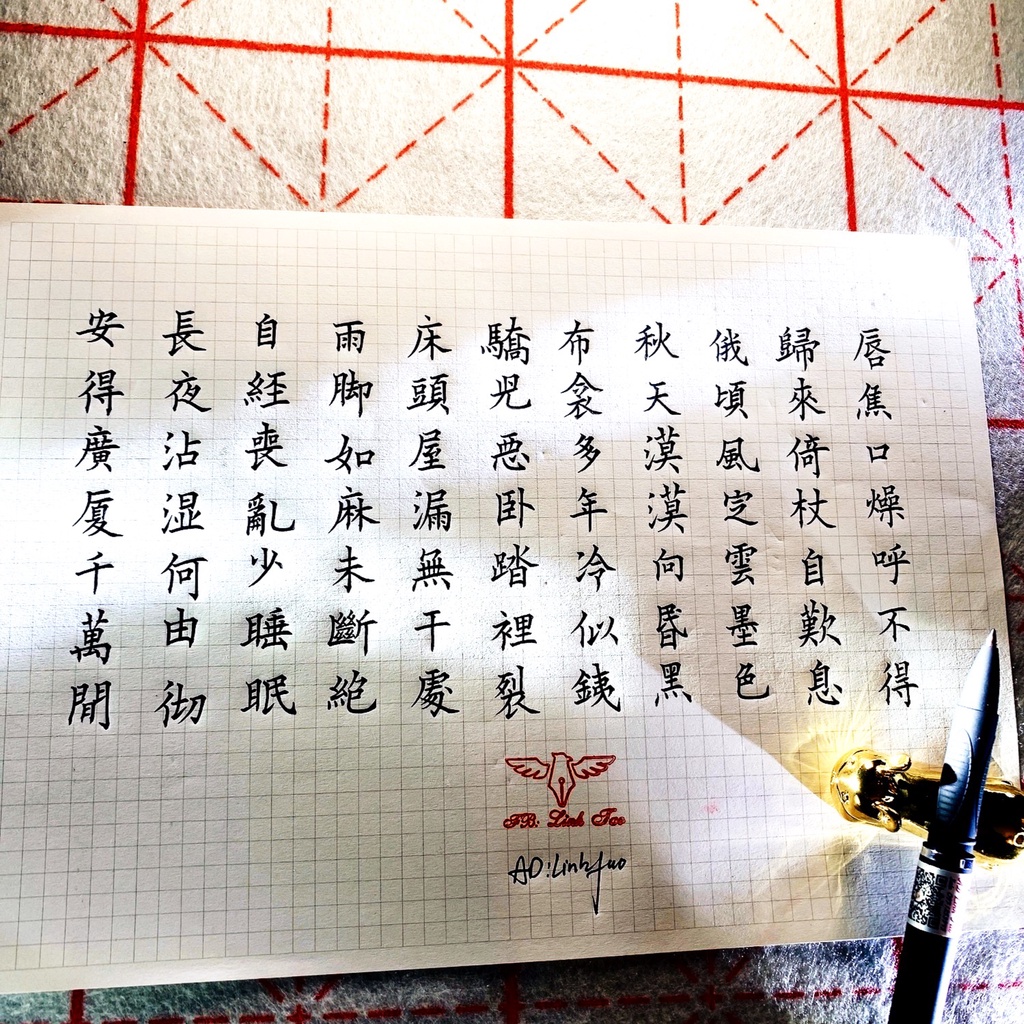 唇焦口燥呼不得
歸來倚杖自歎息
俄頃風定雲墨色
秋天漠漠向昏黑
布衾多年冷似鉄
驕兒惡卧踏裡裂
床頭屋漏無干處
雨脚如麻未斷絕
自經喪亂少睡眠
長夜沾湿何由彻
安得廣厦千萬間
FB: Linh Tao
AD: Linh Tao